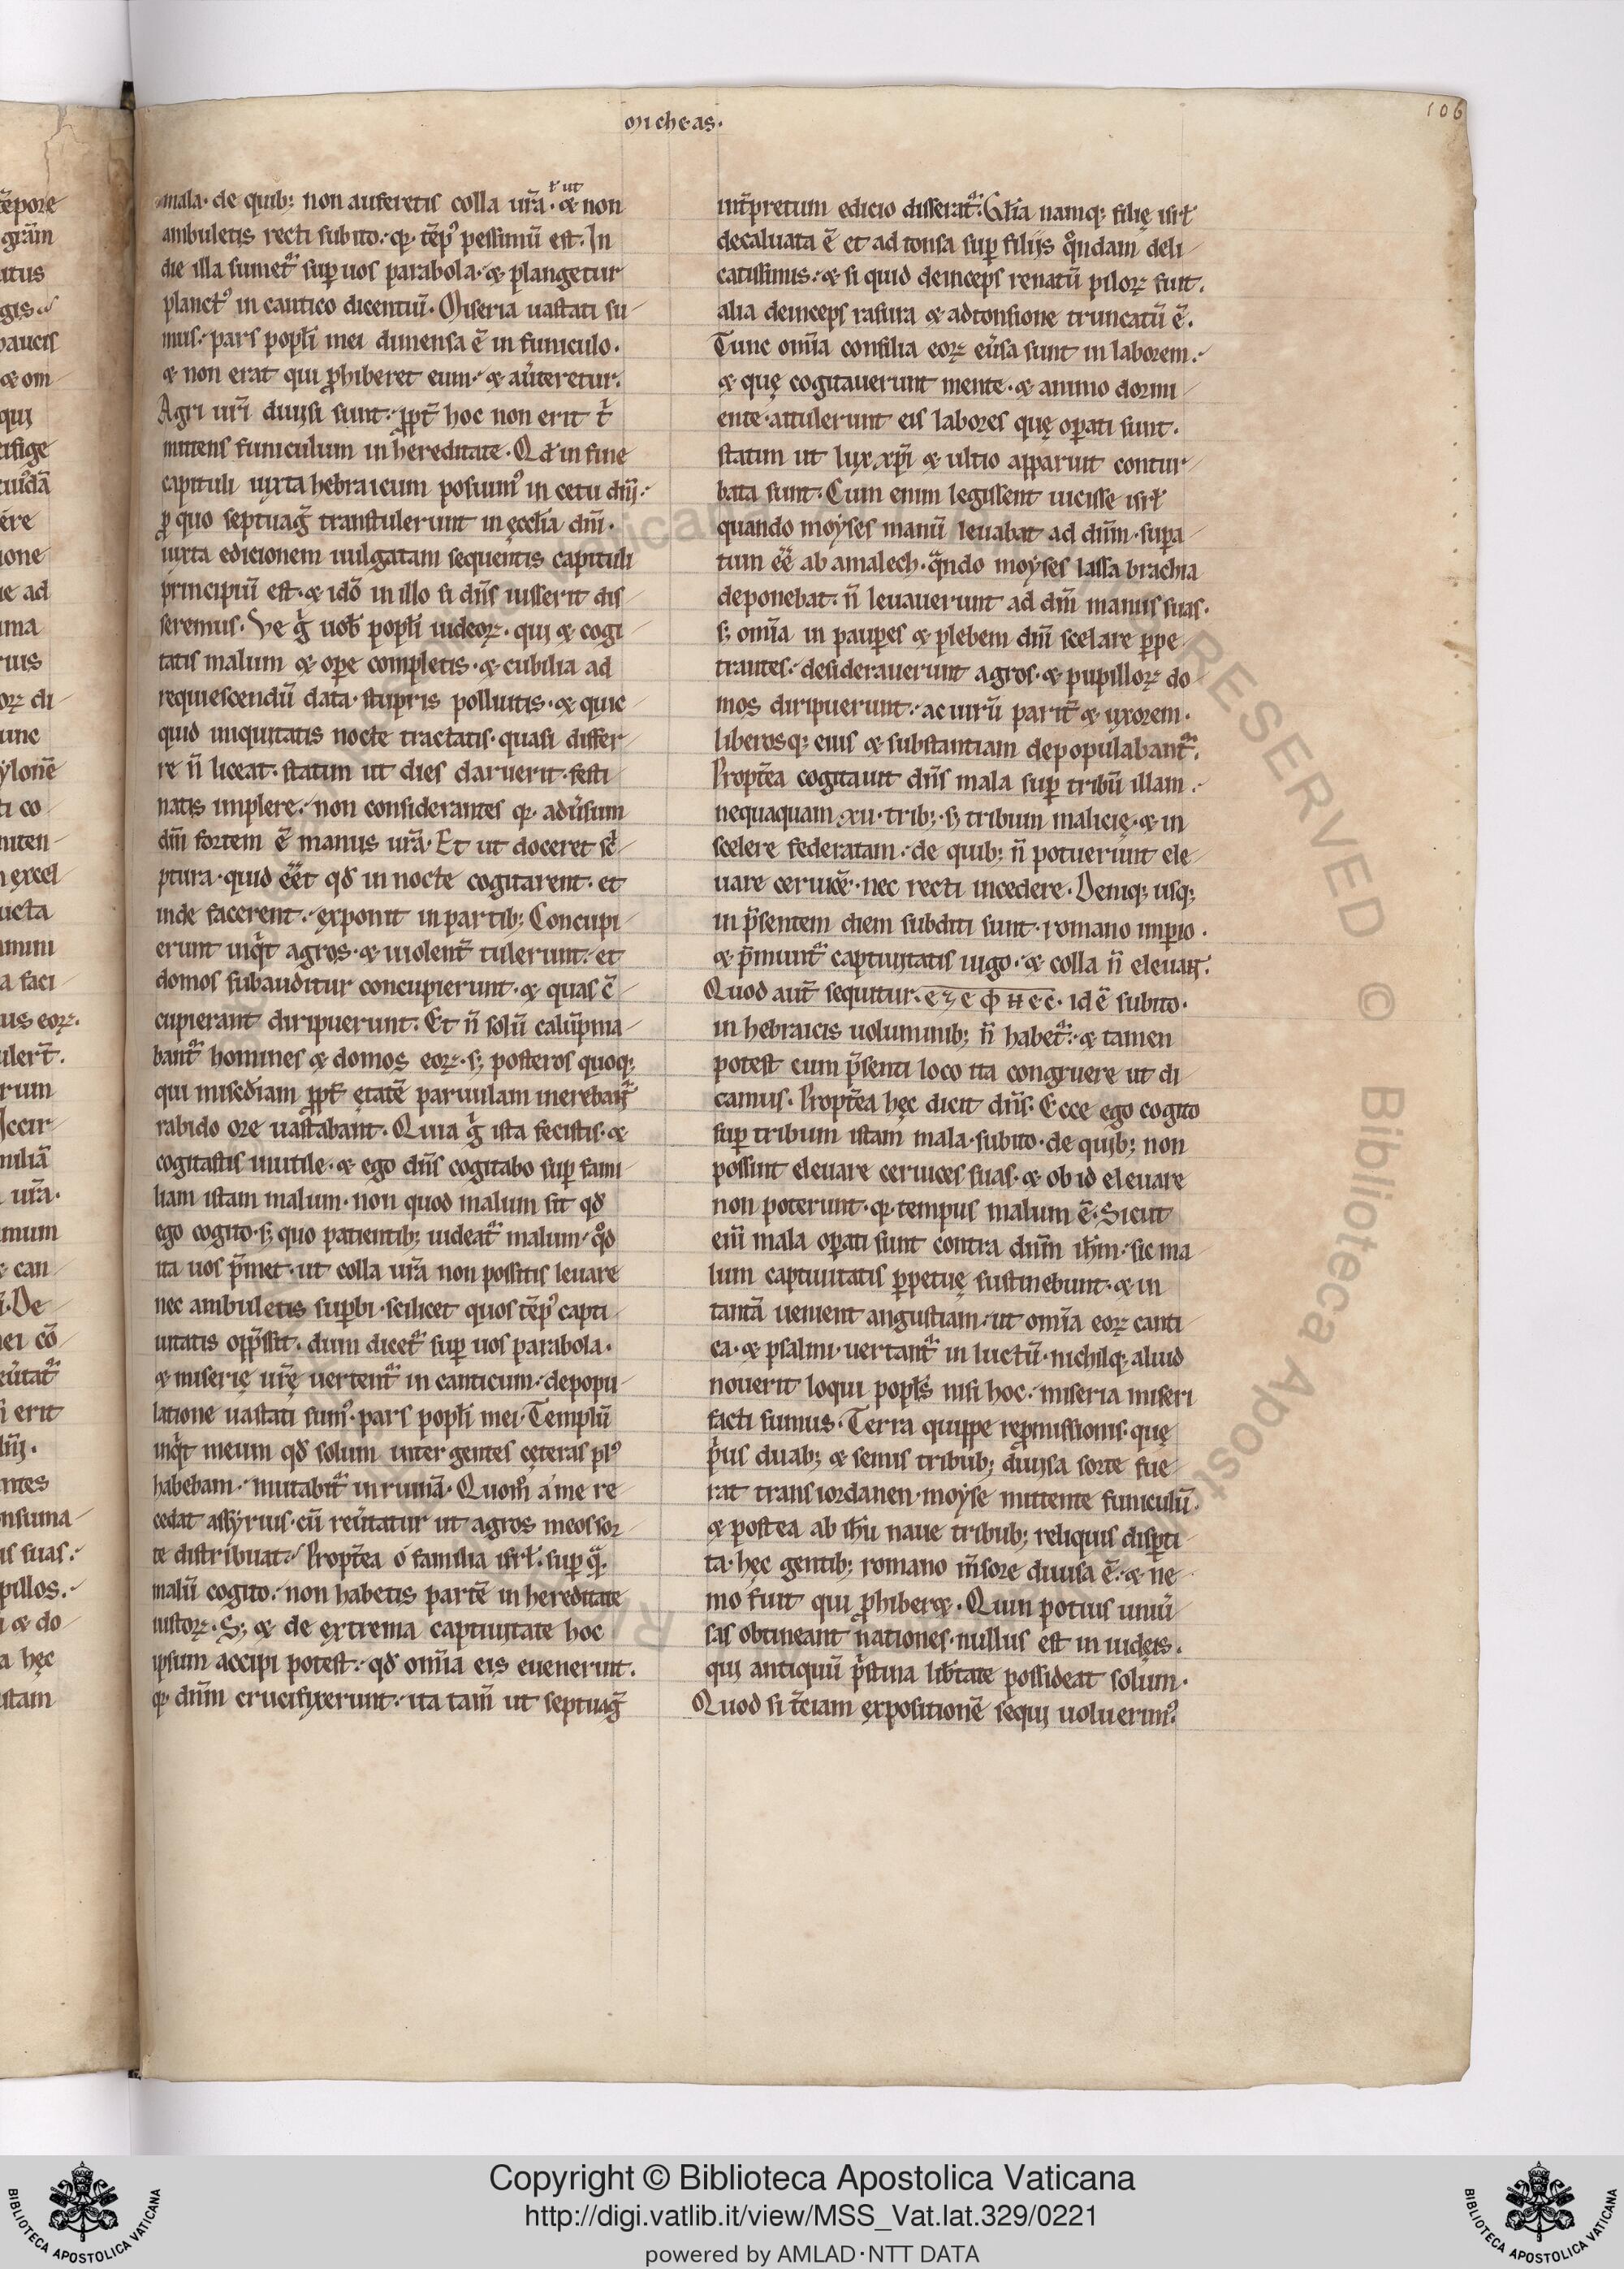 micheas·
106
mala· de quib; non auferetis colla ur̄a· & non
ł ut
ambuletis recti subito· q̄· tēp⁹ pessimū est· In
die illa sumet᷑ sup̱ uos parabola· & plangetur
planct⁹ in cantico dicentiū· Miseria uastati su-
mus· pars popl̄i mei dimensa ē in funiculo·
& non erat qui ꝓhiberet eum· & aūteretur·
Agri ur̄i diuisi sunt· ꝓpt̄ hoc non erit t̄
mittens funiculum in hereditate· Qđ in fine
capituli iuxta hebraicum posuim⁹ in cetu dn̄i·
ꝓ quo septuaḡ transtulerunt in ęccłia dn̄i·
iuxta edicionem uulgatam sequentis capituli
principiū est· & idō in illo si dn̄s iusserit dis-
seremus· Ve g̊ uob̄ popl̄i iudeoꝝ· qui & cogi-
tatis malum & ope completis· & cubilia ad
requiescendū data· stupris polluitis· & quic-
quid iniquitatis nocte tractatis· quasi differ-
re n̄ liceat· statim ut dies claruerit· festi-
natis implere· non considerantes q̄· adūsum
dm̄ fortem ē manus ur̄a· Et ut doceret sc̄-
ptura· quid eēt qđ in nocte cogitarent· et
inde facerent· exponit in partib; Concupi-
erunt inq̇t agros· & uiolent̄ tulerunt· et
domos subauditur concupierunt· & quas c̄-
cupierant diripuerunt· Et n̄ solū calūpnia-
bant᷑ homines & domos eoꝝ· s; posteros quoq;
qui miscđiam ꝓpt̄ ętatē paruulam merebant᷑
rabido ore uastabant· Quia g̊ ista fecistis· &
cogitastis inutile· & ego dn̄s cogitabo sup̱ fami-
liam istam malum· non quod malum sit qđ
ego cogito· s; quo patientib; uideat᷑ malum· qđ
ita uos p̄met· ut colla ur̄a non possitis leuare
nec ambuletis supbi· scilicet quos tēp⁹ capti-
uitatis opp̄ssit· dum dicet᷑ sup̱ uos parabola·
& miserię ur̄ę uertent᷑ in canticum· depopu-
latione uastati sum⁹· pars popl̄i mei· Templū
inq̇t meum qđ solum inter gentes ceteras pl⁹
habebam· mutabit᷑ in ruinā· Quom̊ a me re-
cedat assyrius· cū reūtatur ut agros meos sor-
te distribuat· Propt̄ea o familia isrł· sup̱ q̄·
malū cogito· non habetis partē in hereditate
iustoꝝ· S; & de extrema captiuitate hoc
ipsum accipi potest· qđ om̄ia eis euenerint·
q̄· dn̄m crucifixerunt· ita tam̄ ut septuaḡ
int̄pretum edicio disserat᷑· Gł̄ia namq; filię isrł
decaluata ē et ad tonsa sup̱ filiis q̊ndam deli-
catissimis· & si quid deinceps renatū piloꝝ fuit·
alia deinceps rasura & adtonsione truncatū ē·
Tunc om̄ia consilia eoꝝ eūsa sunt in laborem·
& quę cogitauerunt mente· & animo dormi-
ente· attulerunt eis labores quę oꝑati sunt·
statim ut lux xp̄i & ultio apparuit contur-
bata sunt· Cum enim legissent uicisse isrł
quando moyses manū leuabat ad dn̄m· supa-
tum eē ab amalech· q̄ndo moyses lassa brachia
deponebat· n̄ leuauerunt ad dm̄ manus suas·
s; om̄ia in paupes & plebem dn̄i scelare ꝑpe-
trantes· desiderauerunt agros· & pupilloꝝ do-
mos diripuerunt· ac uirū parit̄ & uxorem·
liberosq; eius & substantiam depopulabant᷑·
Propt̄ea cogitauit dn̄s mala sup̱ tribū illam·
nequaquam xii· trib;· s; tribum malicię· & in
scelere federatam· de quib; n̄ potuerunt ele-
uare ceruicē· nec recti incedere· Deniq; usq;
in p̄sentem diem subditi sunt· romano imꝑio·
& p̄munt᷑ captiuitatis iugo· & colla n̄ eleuant·
Quod aut̄ sequitur· ΕΖΕΦΗΕC· id ē subito·
in hebraicis uoluminib; n̄ habet᷑· & tamen
potest cum p̄senti loco ita congruere ut di-
camus· Propt̄ea hęc dicit dn̄s· Ecce ego cogito
sup̱ tribum istam mala· subito· de quib; non
possint eleuare ceruices suas· & ob id eleuare
non poterunt· q̄· tempus malum ē· Sicut
eni̅ mala oꝑati sunt contra dn̄m ih̄m· sic ma-
lum captiuitatis ꝑpetuę sustinebunt· & in
tantā uenient angustiam· ut om̄ia eoꝝ canti-
ca· & psalmi· uertant᷑ in luctū· nichilq; aliud
nouerit loqui popl̄s nisi hoc· miseria miseri
facti sumus· Terra quippe reꝓmissionis· quę
p̄us duab; & semis tribub; diuisa sorte fue-
rat trans iordanen· moyse mittente funiculū
& postea ab ih̄u naue tribub; reliquis disꝑti-
ta· hęc gentib; romano m̄sore diuisa ē· & ne-
mo fuit qui ꝓhiber&· Quin potius uniū-
sas obtineant nationes· nullus est in iudęis·
qui antiquū p̄stina lib̄tate possideat solum·
Quod si t̄ciam expositionē sequi uoluerim⁹
Copyright © Biblioteca Apostolica Vaticana
http://digi.vatlib.it/view/MSS_Vat.lat.329/0221
powered by AMLAD·NTT DATA
BIBLIOTECA APOSTOLICA VATICANA
BIBLIOTECA APOSTOLICA VATICANA